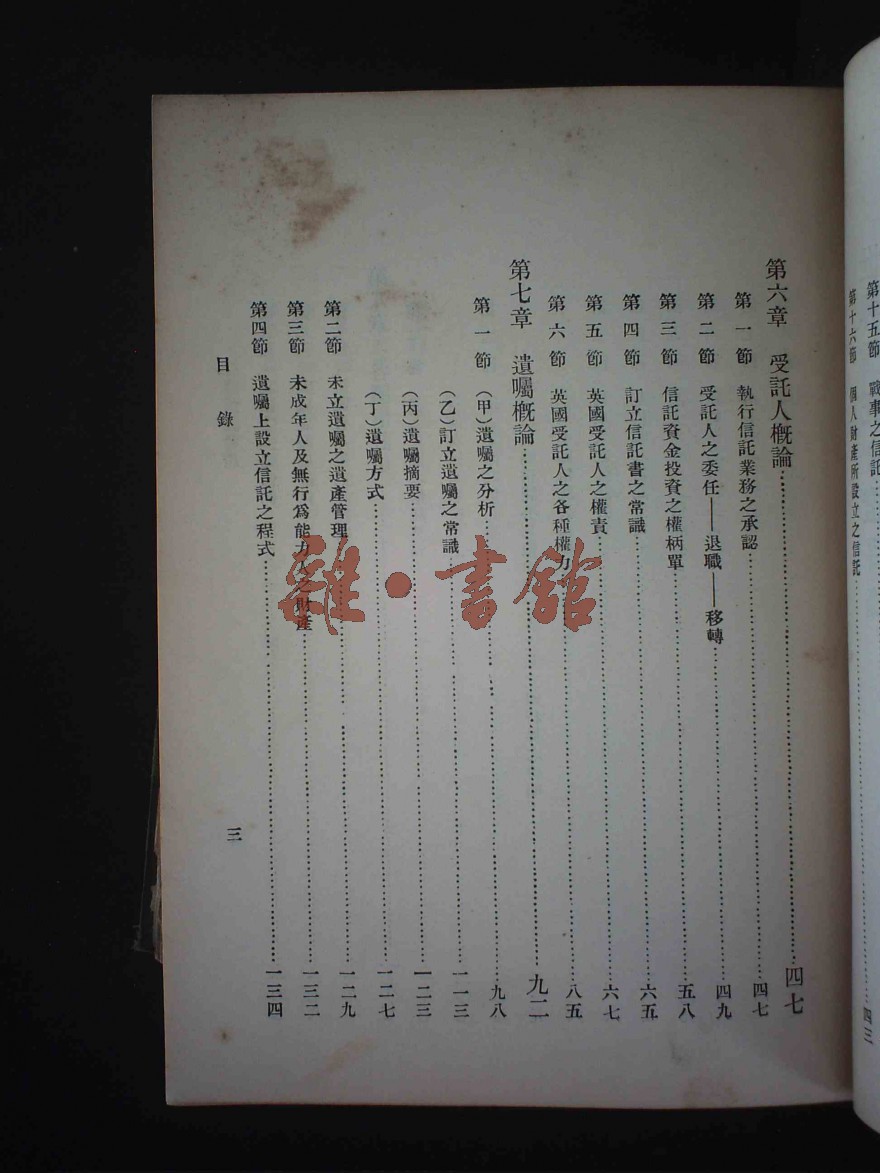 第十五節　戰事之信託
第十六節　個人財產所設立之信託……四三
第六章　受託人概論……四七
第一節　執行信託業務之承認……四七
第二節　受託人之委任——退職——移轉……四九
第三節　信託資金投資之權柄單……五八
第四節　訂立信託書之常識……六五
第五節　英國受託人之權責……六七
第六節　英國受託人之各種權力……八五
第七章　遺囑概論……九二
第一節　（甲）遺囑之分析……九八
（乙）訂立遺囑之常識……一一三
（丙）遺囑摘要……一二三
（丁）遺囑方式……一二七
第二節　未立遺囑之遺產管理……一二九
第三節　未成年人及無行爲能力人之財產……一三二
第四節　遺囑上設立信託之程式……一三四
目錄
三
雜·書館